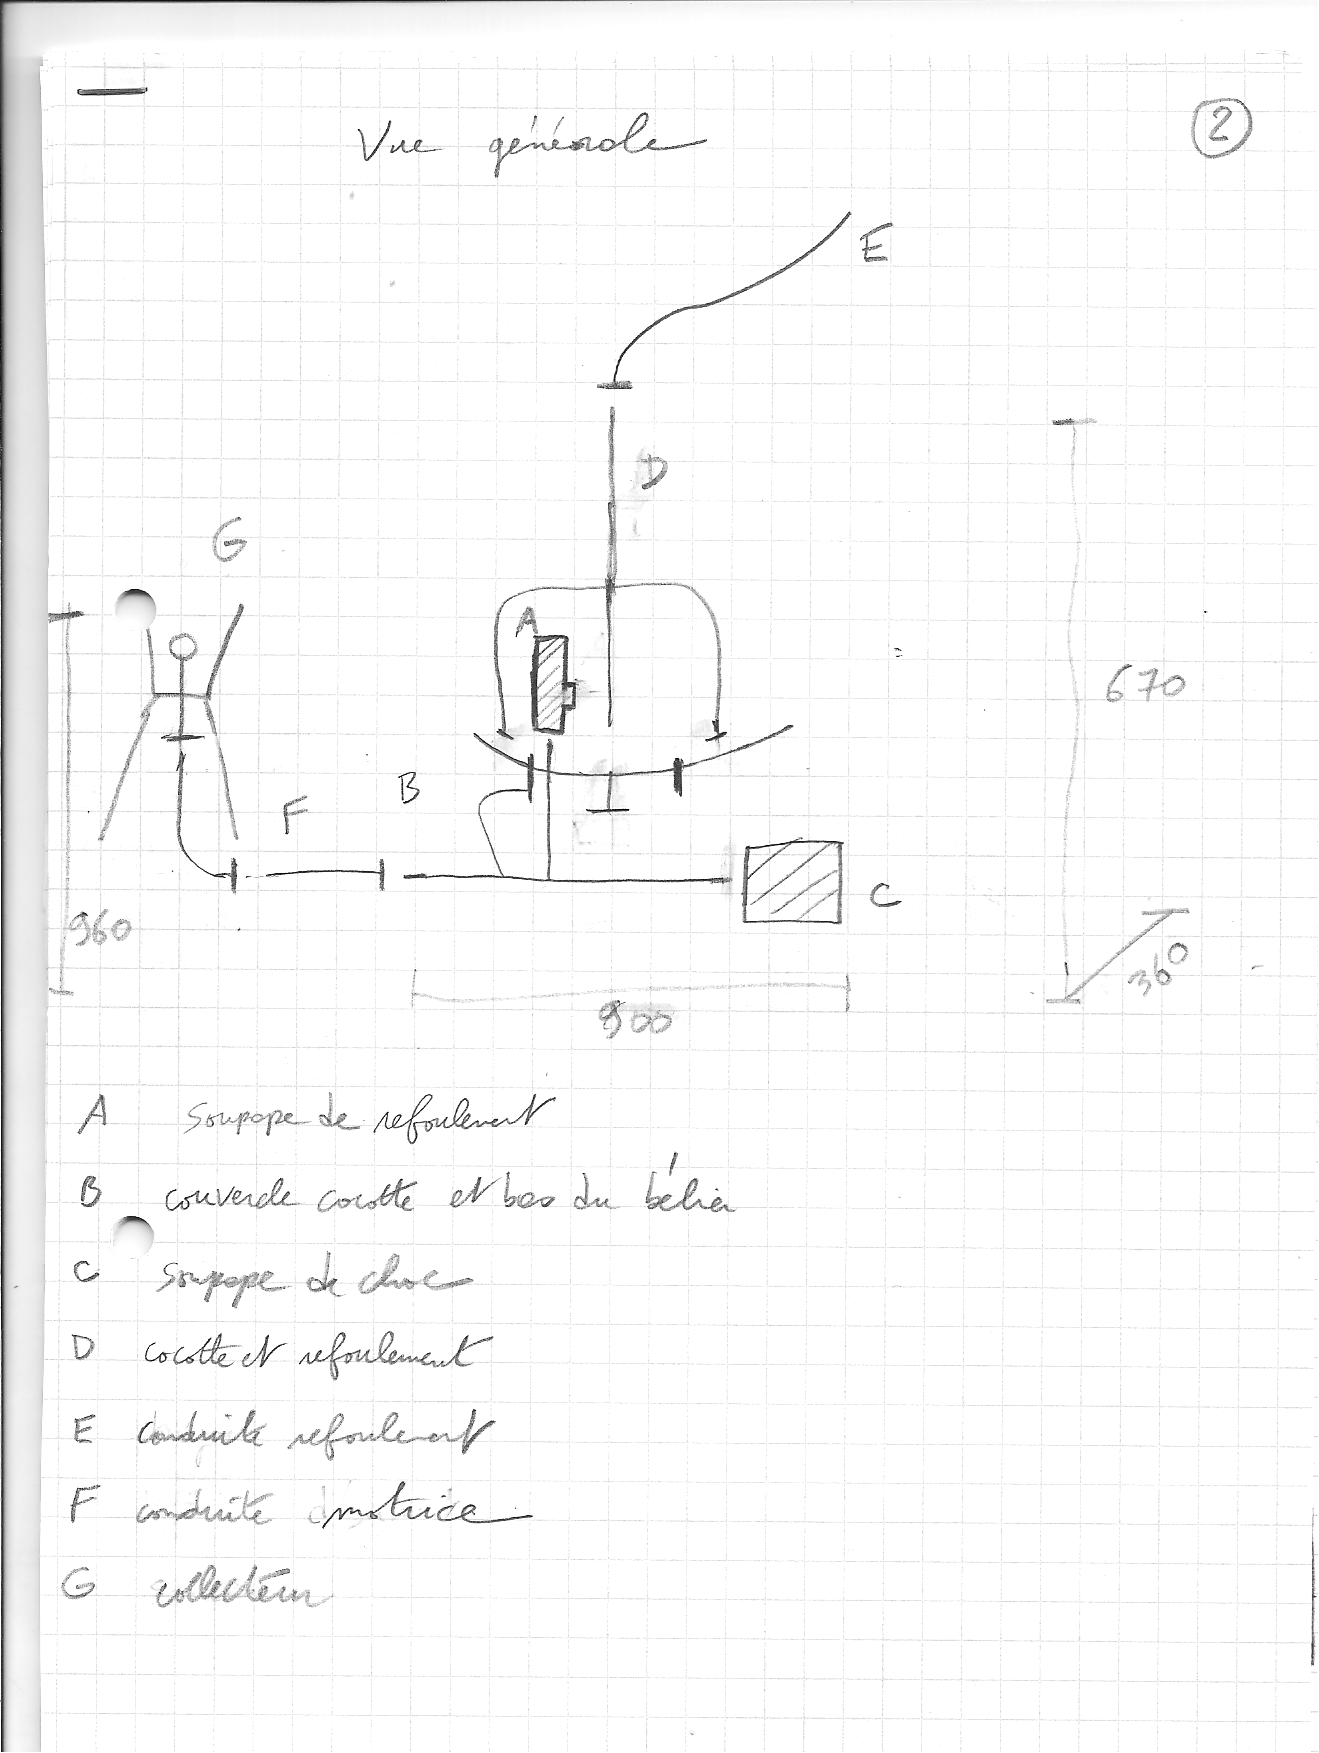 Vue générale
2
E
D
G
A
670
B
F
C
960
360
900
A soupape de refoulement
B couvercle cocotte et bas du bélier
C soupape de choc
D cocotte et refoulement
E conduite refoulement
F conduite motrice
G collecteur